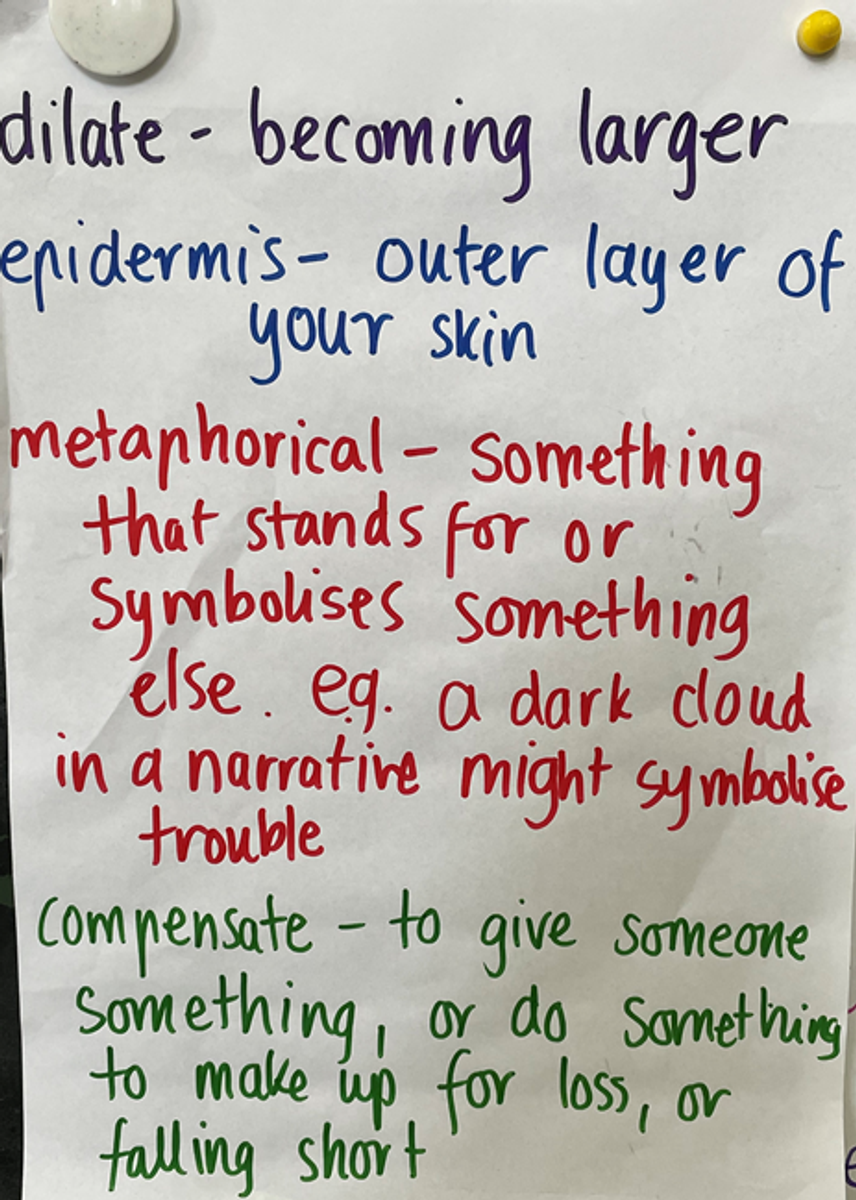 dilate - becoming larger
epidermis - outer layer of
your skin
metaphorical - something
that stands for or
symbolises something
else. eg. a dark cloud
in a narrative might symbolise
trouble
compensate - to give someone
something, or do something
to make up for loss, or
falling short